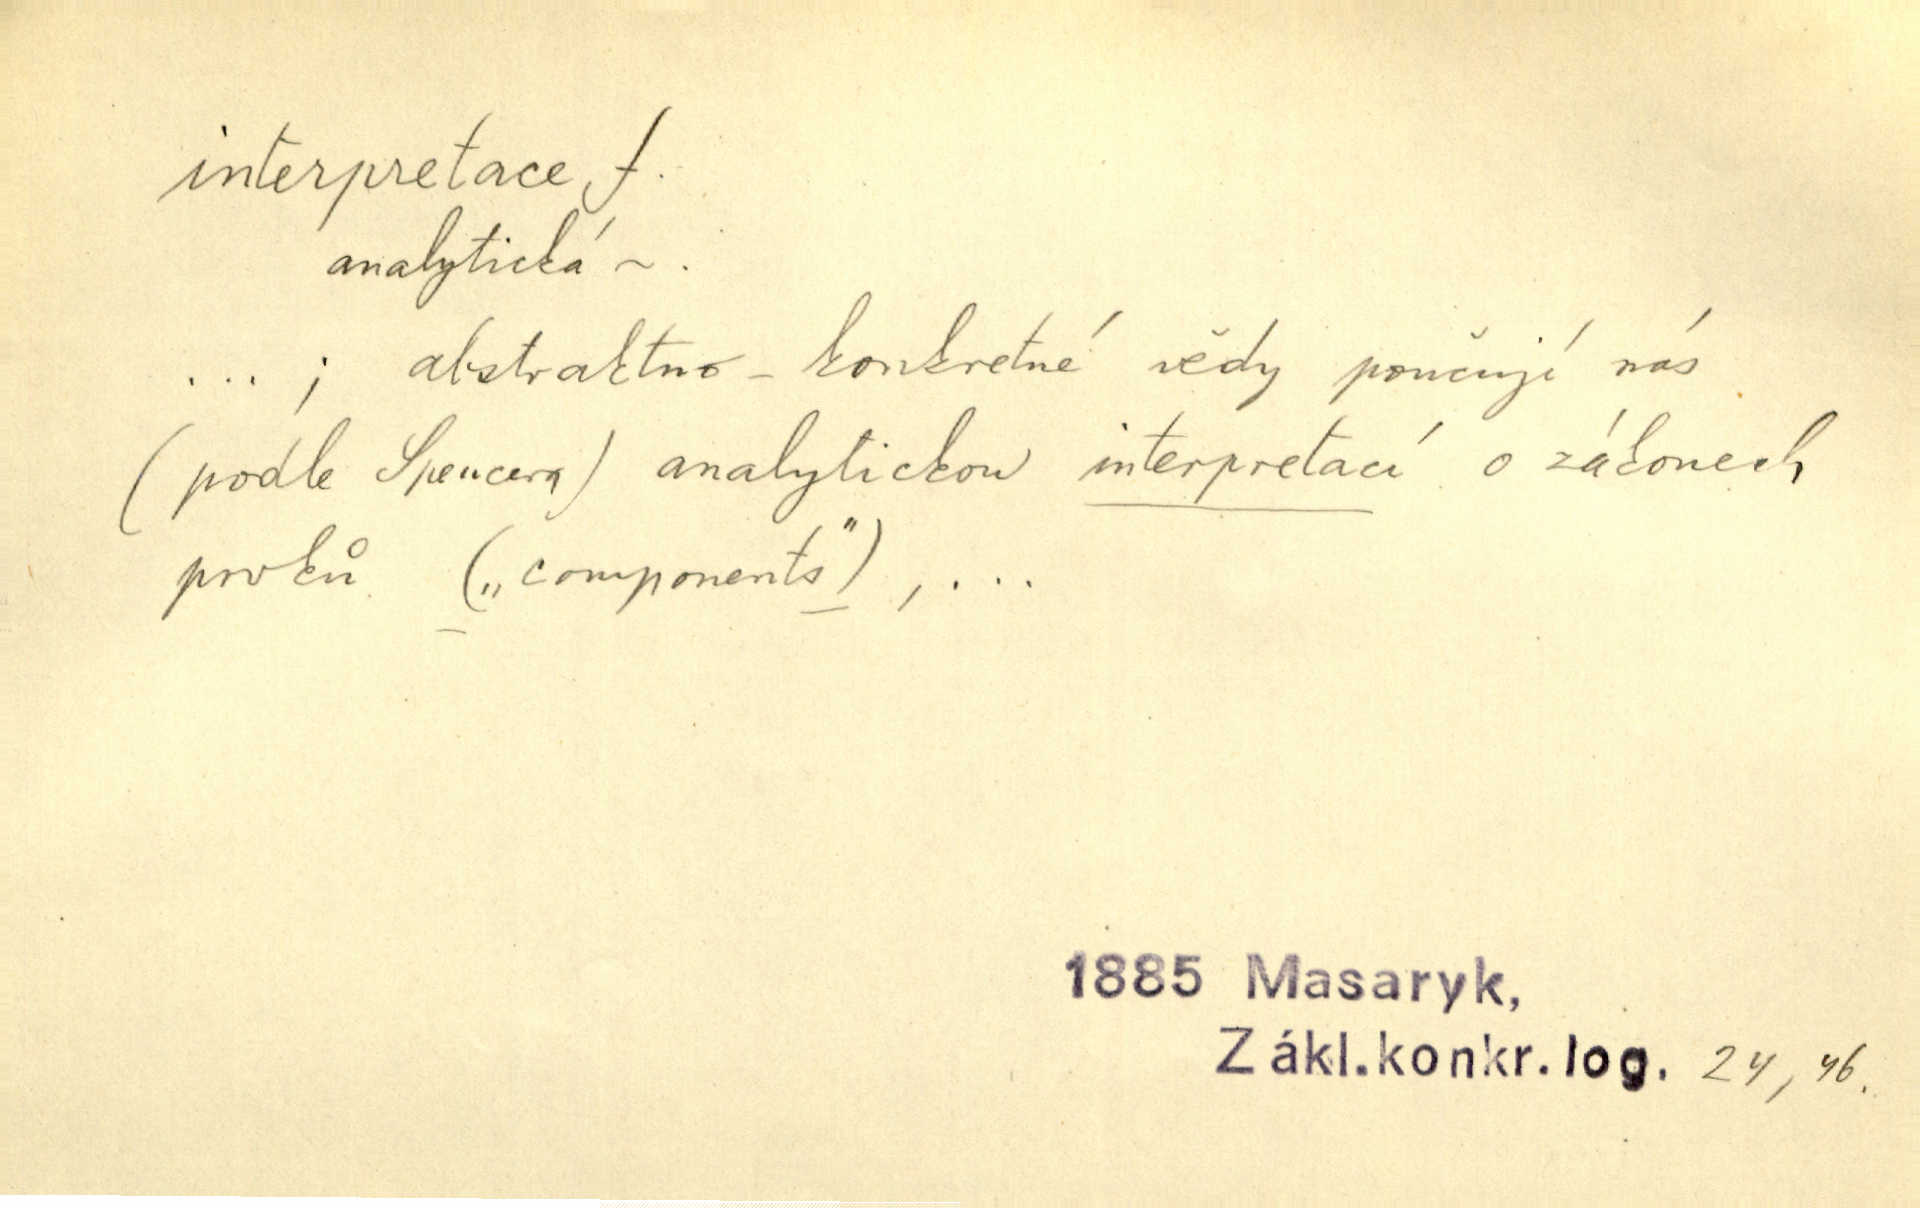 interpretace f.
analytická ~.
... ; abstraktno-konkretné vědy poučují nás
(podle Spencera) analytickou interpretací o zákonech
prvků („components"), ...
1885 Masaryk,
Zákl.konkr.log. 24, 46.